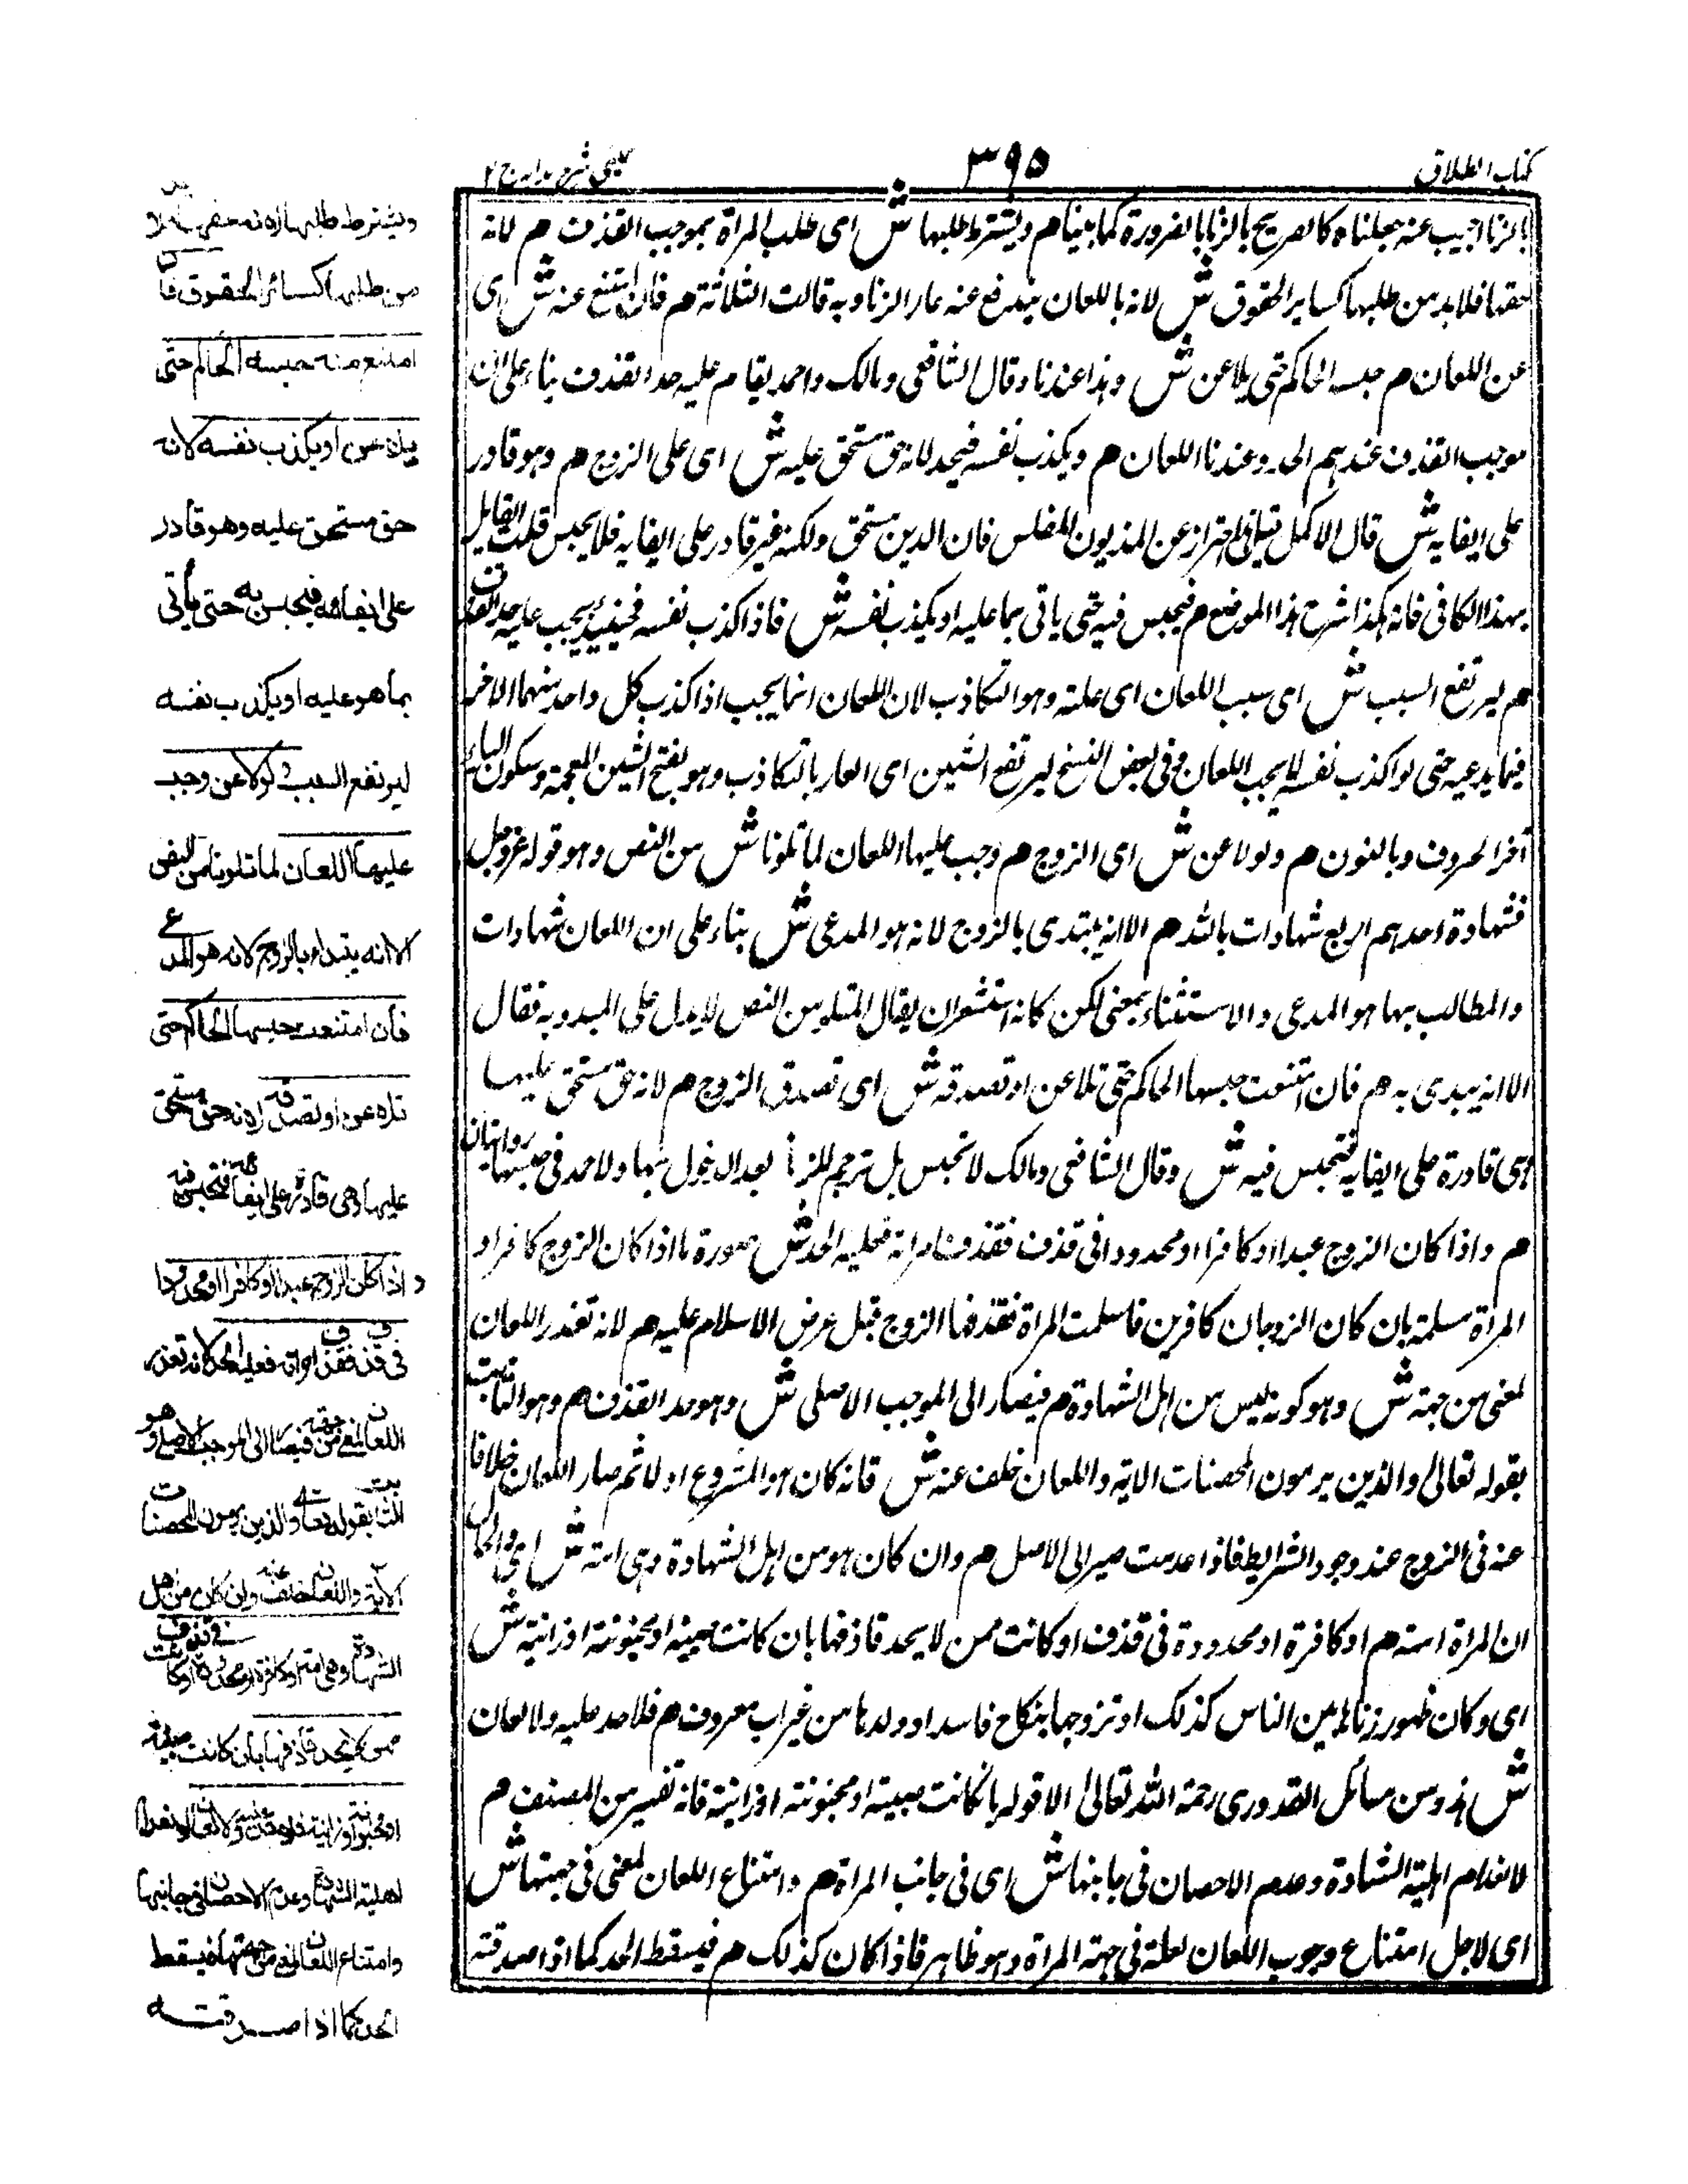 كتاب الطلاق
٣٩٥
عيني شرح هداية ج ٢
بالزنا اجيب عنه جعلناه كالصريح بالزنا بالضرورة كما بينا م ويشترط طلبها ش اى طلب المرأة بموجب القذف م لانه
حقها فلا بد من طلبها كساير الحقوق ش لانه باللعان يندفع عنه عار الزنا وبه قالت الثلاثة م فان امتنع عنه ش اى
عن اللعان م حبسه الحاكم حتى يلاعن ش وهذا عندنا وقال الشافعى ومالك واحمد يقام عليه حد القذف بناء على ان
موجب القذف عندهم الحد وعندنا اللعان م ويكذب نفسه فيحد لانه حق مستحق عليه ش اى على الزوج م وهو قادر
على ايفايه ش قال الاكمل قيل احتراز عن المديون المفلس فان الدين مستحق ولكنه غير قادر على ايفايه فلا يحبس قلت القايل
بهذا الكافى فانه هكذا شرح هذا الموضع م فيحبس فيه حتى ياتى بما عليه او يكذب نفسه ش فاذا اكذب نفسه فحينئذ يجب عليه حد القذف
م ليرتفع السبب ش اى سبب اللعان اى علته وهو التكاذب لان اللعان انما يجب اذا كذب كل واحد منهما الاخر
فيما يدعيه حتى لو اكذب نفسه لا يجب اللعان وفى بعض النسخ ليرتفع الشين اى العار بالتكاذب وهو بفتح الشين المعجمة وسكون الياء
آخر الحروف وبالنون م ولو لاعن ش اى الزوج م وجب عليها اللعان لما تلونا ش من النص وهو قوله عز وجل
فشهادة احدهم اربع شهادات بالله م الا انه يبتدى بالزوج لانه هو المدعى ش بناء على ان اللعان شهادات
والمطالب بها هو المدعى والاستثناء بمعنى لكن كانه استشعر ان يقال المتلو من النص لا يدل على المبدو به فقال
الا انه يبدى به م فان امتنعت حبسها الحاكم حتى تلاعن او تصدقه ش اى تصدق الزوج م لانه حق مستحق عليها
وهى قادرة على ايفايه فتحبس فيه ش وقال الشافعى ومالك لا تحبس بل ترجم للزنا بعد الدخول بها ولاحمد فى حبسها روايتان
م واذا كان الزوج عبدا او كافرا او محدودا فى قذف فقذف امراته فعليه الحد ش صورة ما اذا كان الزوج كافرا و
المرأة مسلمة بان كان الزوجان كافرين فاسلمت المرأة فقذفها الزوج قبل عرض الاسلام عليه م لانه تعذر اللعان
لمعنى من جهته ش وهو كونه ليس من اهل الشهادة م فيصار الى الموجب الاصلى ش وهو حد القذف م وهو الثابت
بقوله تعالى والذين يرمون المحصنات الاية واللعان خلف عنه ش فانه كان هو المشروع اولا ثم صار اللعان خلافا
عنه فى الزوج عند وجود الشرايط فاذا عدمت صير الى الاصل م وان كان هو من اهل الشهادة وهى امته ش اى والحال
ان المراة امته م او كافرة او محدودة فى قذف او كانت ممن لا يحد قاذفها بان كانت صبية او مجنونة او زانية ش
اى وكان ظهور زنا لها بين الناس كذلك او تزوجها بنكاح فاسد او ولدها من غير اب معروف م فلا حد عليه ولا لعان
ش هذه من مسائل القدورى رحمة الله تعالى الا قوله بان كانت صبية او مجنونة او زانية فانه تفسير من المصنف م
لانعدام اهلية الشهادة وعدم الاحصان فى جانبها ش اى فى جانب المراة م وامتناع اللعان لمعنى فى جهتها ش
اى لاجل امتناع وجوب اللعان لعلة فى جهة المراة وهو ظاهر فاذا كان كذلك م فيسقط الحد كما اذا صدقته
ويشترط طلبها لانه حقها فلا بد
من طلبها كسائر الحقوق فان
امتنع منه حبسه الحاكم حتى
يلاعن او يكذب نفسه لانه
حق مستحق عليه وهو قادر
على ايفائه فيحبس به حتى يأتى
بما هو عليه او يكذب نفسه
ليرتفع السبب ولو لاعن وجب
عليها اللعان لما تلونا من النص
الا انه يبتداء بالزوج لانه هو المدعى
فان امتنعت حبسها الحاكم حتى
تلاعن او تصدقه لانه حق مستحق
عليها وهى قادرة على ايفائه فتحبس فيه
واذا كان الزوج عبدا او كافرا او محدودا
فى قذف فقذف امراته فعليه الحد لانه تعذر
اللعان لمعنى من جهته فيصار الى الموجب الاصلى وهو
الثابت بقوله تعالى والذين يرمون المحصنات
الآية واللعان خلف عنه وان كان من اهل
الشهادة وهى امة او كافرة او محدودة فى قذف او كانت
ممن لا يحد قاذفها بان كانت صبية
او مجنونة او زانية فلا حد عليه ولا لعان لانعدام
اهلية الشهادة وعدم الاحصان فى جانبها
وامتناع اللعان لمعنى من جهتها فيسقط
الحد كما اذا صدقته